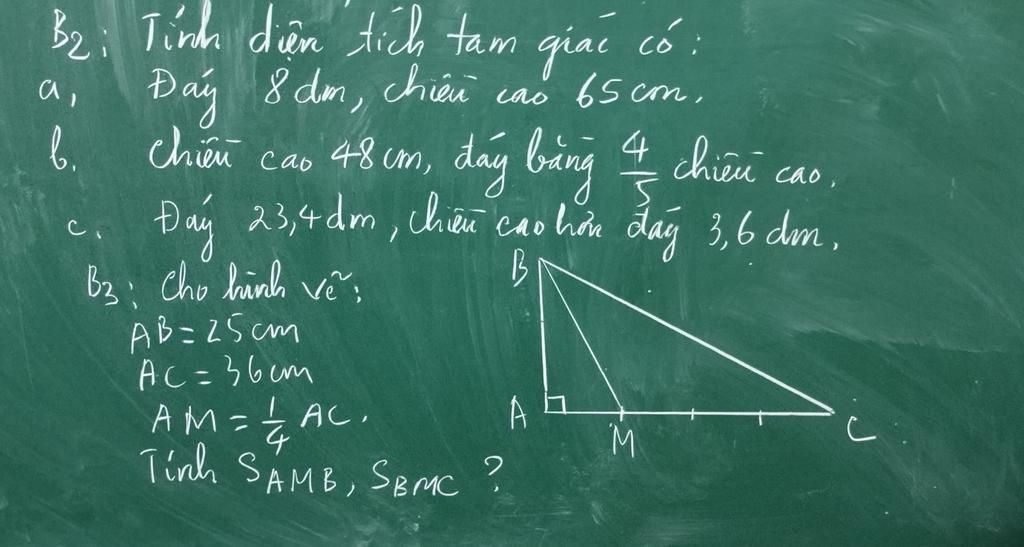 B2: Tính diện tích tam giác có:
a, Đáy 8 dm, chiều cao 65 cm.
b. Chiều cao 48 cm, đáy bằng 4/5 chiều cao.
c. Đáy 23,4 dm, chiều cao hơn đáy 3,6 dm.
B3: Cho hình vẽ:
AB = 25 cm
AC = 36 cm
AM = 1/4 AC.
Tính SAMB, SBMC ?
B
A
M
C